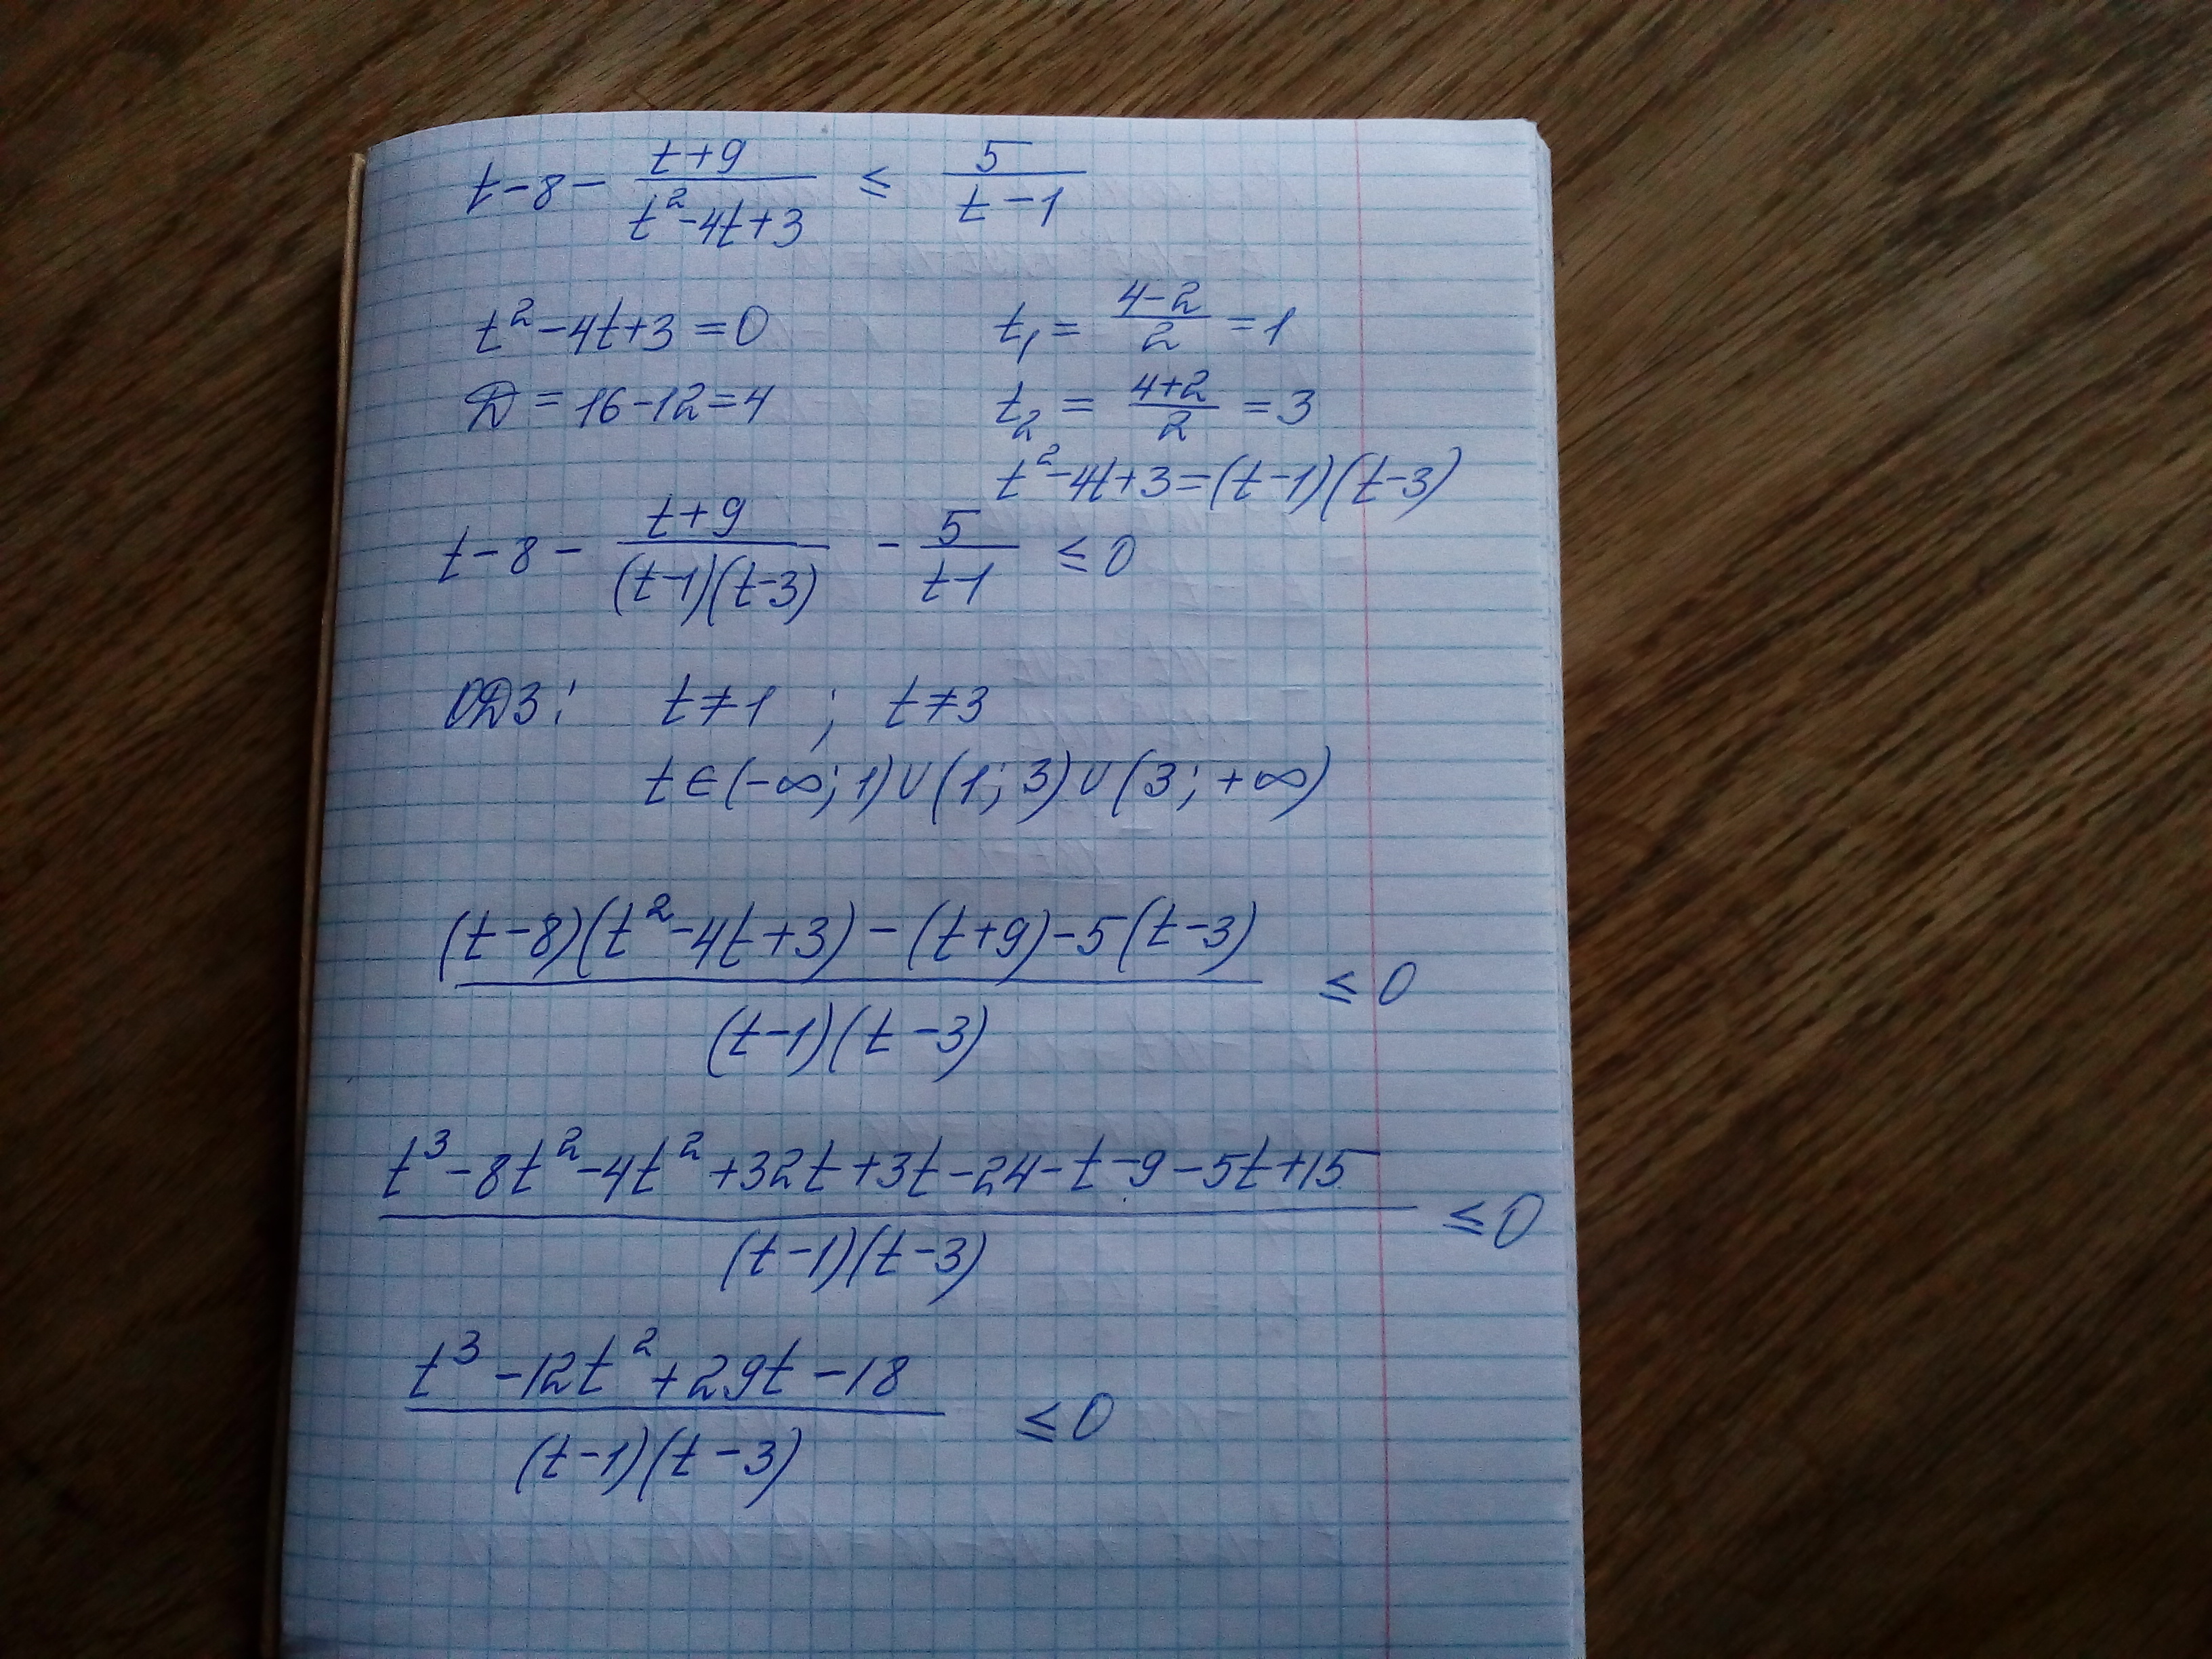 t-8- (t+9)/(t²-4t+3) ≤ 5/(t-1)
t²-4t+3=0 t₁= (4-2)/2 =1
D=16-12=4 t₂= (4+2)/2 =3
t²-4t+3=(t-1)(t-3)
t-8- (t+9)/((t-1)(t-3)) - 5/(t-1) ≤0
ОДЗ: t≠1 ; t≠3
t∈(-∞;1)∪(1;3)∪(3;+∞)
((t-8)(t²-4t+3)-(t+9)-5(t-3))/((t-1)(t-3)) ≤0
(t³-8t²-4t²+32t+3t-24-t-9-5t+15)/((t-1)(t-3)) ≤0
(t³-12t²+29t-18)/((t-1)(t-3)) ≤0